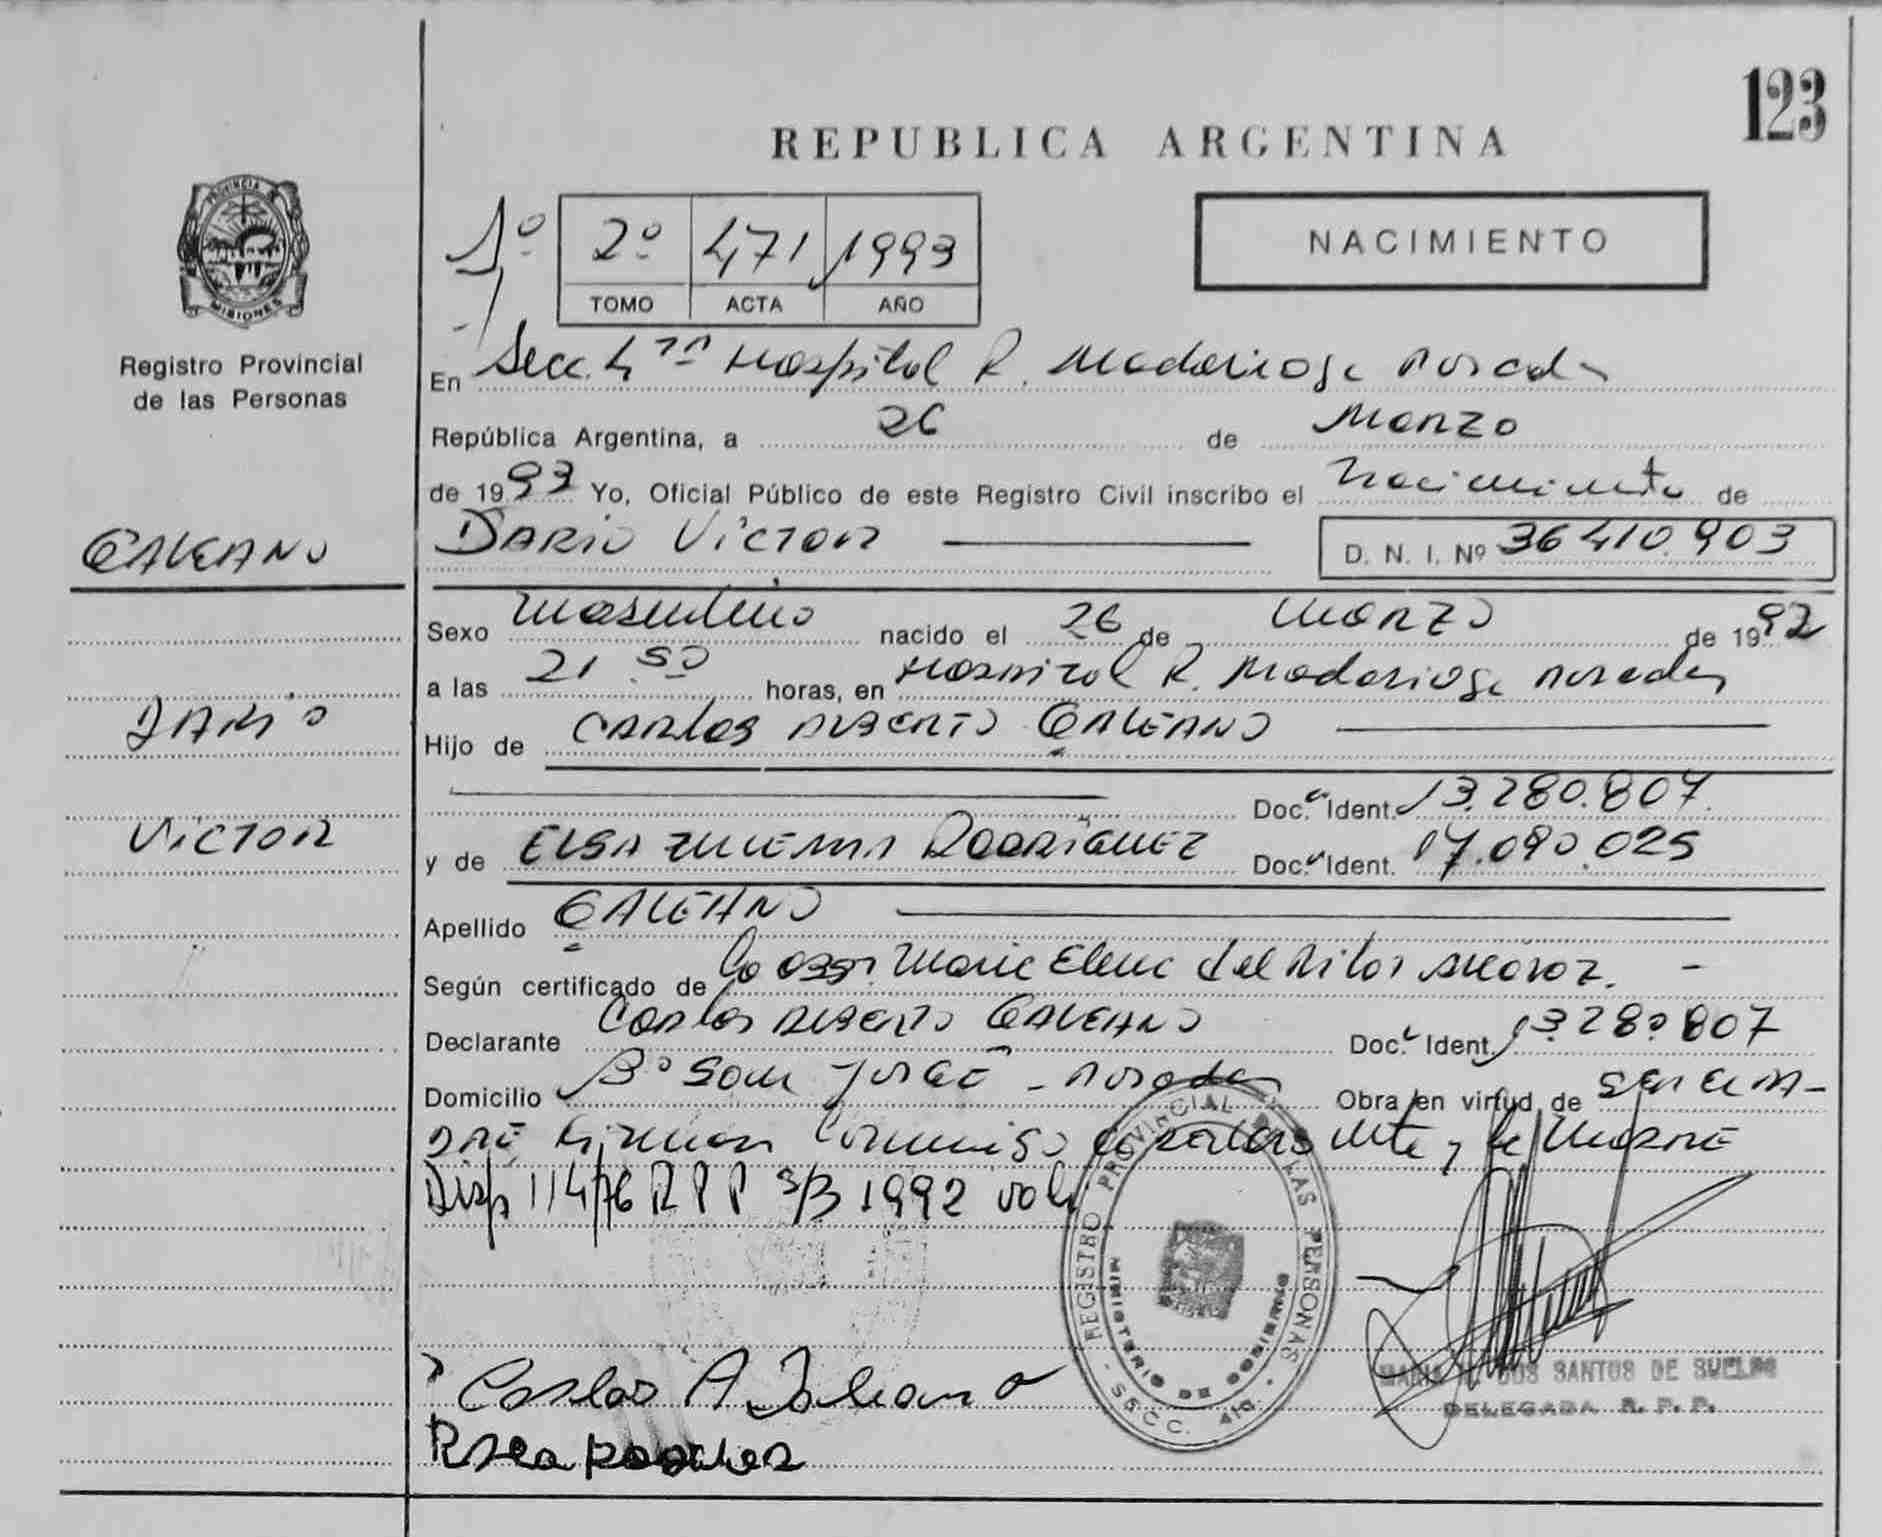 123
REPUBLICA ARGENTINA
PROVINCIA DE
MISIONES
Registro Provincial
de las Personas
1º 2º 471 1993
TOMO ACTA AÑO
NACIMIENTO
En Secc. 4ta Hospital R. Madariaga Posadas
República Argentina, a 26 de Marzo
de 1993 Yo, Oficial Público de este Registro Civil inscribo el Nacimiento de
GALEANO
DARIO VICTOR
D. N. I. Nº 36410.903
Sexo Masculino nacido el 26 de Marzo de 1992
a las 21.50 horas, en Hospital R. Madariaga Posadas
DARIO
Hijo de CARLOS ALBERTO GALEANO
Doc. Ident. 13.280.807
VICTOR
y de ELSA ZULEMA RODRIGUEZ Doc. Ident. 17.090.025
Apellido GALEANO
Según certificado de Maria Elena del Pilar
Declarante Carlos ALBERTO GALEANO Doc. Ident. 13.280.807
Domicilio Bº San Jorge - Posadas Obra en virtud de
Firman Conmigo el Declarante y la Madre
Disp 114/76 R P P S/B 1992
REGISTRO PROVINCIAL DE LAS PERSONAS
MINISTERIO DE GOBIERNO
- SECC. 4ta -
Carlos A Galeano
DOS SANTOS DE
DELEGADA R. P. P.